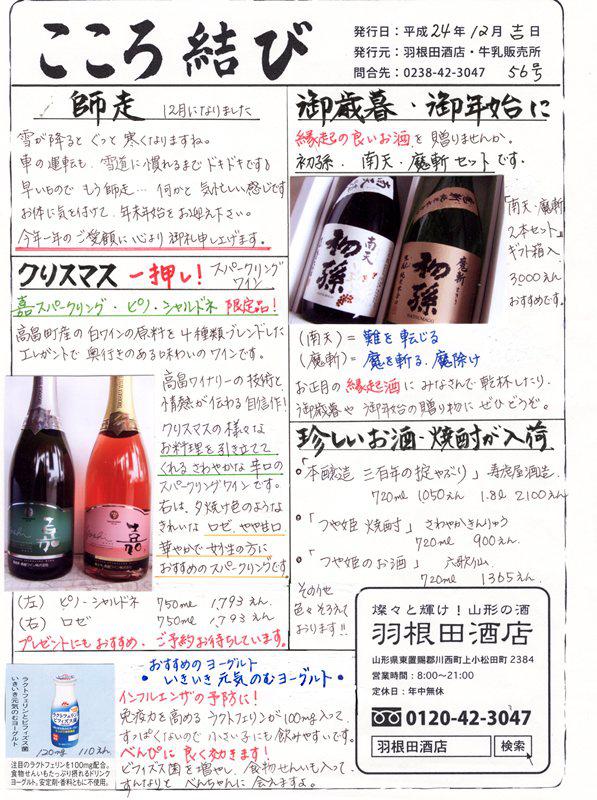 こころ結び
発行日：平成24年12月吉日
発行元：羽根田酒店・牛乳販売所
問合先：0238-42-3047
56号
師走 12月になりました
雪が降ると ぐっと 寒くなりますね。
車の運転も、雪道に慣れるまで ドキドキです
早いもので もう師走… 何かと 気忙しい感じです
お体に気を付けて、年末年始を お迎え下さい。
今年一年のご愛顧に心より御礼申し上げます。
クリスマス 一押し！ スパークリング
ワイン
嘉スパークリング・ピノ・シャルドネ 限定品！
高畠町産の白ワインの原料を4種類ブレンドした
エレガントで 奥行きのある味わいのワインです。
高畠ワイナリーの技術と
情熱が伝わる自信作！
クリスマスの様々な
お料理を引き立てて
くれる さわやかな 辛口の
スパークリングワインです。
右は、夕焼け色のような
きれいな ロゼ やや甘口
華やかで 女性の方に
おすすめのスパークリングです。
嘉
嘉
(左) ピノ・シャルドネ 750ml 1,793えん
(右) ロゼ 750ml 1,793えん
プレゼントにもおすすめ、ご予約お待ちしています。
御歳暮・御年始に
縁起の良いお酒を贈りませんか。
初孫．南天・魔斬セットです．
南天
初孫
魔斬
初孫
「南天・魔斬
2本セット」
ギフト箱入
3000えん
おすすめです。
(南天)＝ 難を転じる
(魔斬)＝ 魔を斬る、魔除け
お正月の縁起酒に みなさんで 乾杯したり、
御歳暮や 御年始の贈り物に ぜひどうぞ。
珍しいお酒・焼酎が入荷
「本醸造 三百年の掟やぶり」寿虎屋酒造
720ml 1050えん 1.8l 2100えん
「つや姫 焼酎」 さわやかきんりゅう
720ml 900えん
「つや姫のお酒」 六歌仙
720ml 1365えん
その他
色々そろえて
おります!!
燦々と輝け！山形の酒
羽根田酒店
山形県東置賜郡川西町上小松田町2384
営業時間：8:00～21:00
定休日：年中無休
0120-42-3047
羽根田酒店 検索
おすすめの ヨーグルト
・いきいき 元気のむヨーグルト・
インフルエンザの予防に！
免疫力を高める ラクトフェリンが100mg入って、
すっぱくないので 小さい子にも 飲みやすいです。
べんぴに 良く効きます！
ビフィズス菌を増やし、食物せんいも入って
すんなりと べんちゃんに 会えますよ。
ラクトフェリンとビフィズス菌
いきいき元気のむヨーグルト
120ml 110えん
注目のラクトフェリンを100mg配合。
食物せんいもたっぷり摂れるドリンク
ヨーグルト。安定剤・香料ともに不使用。